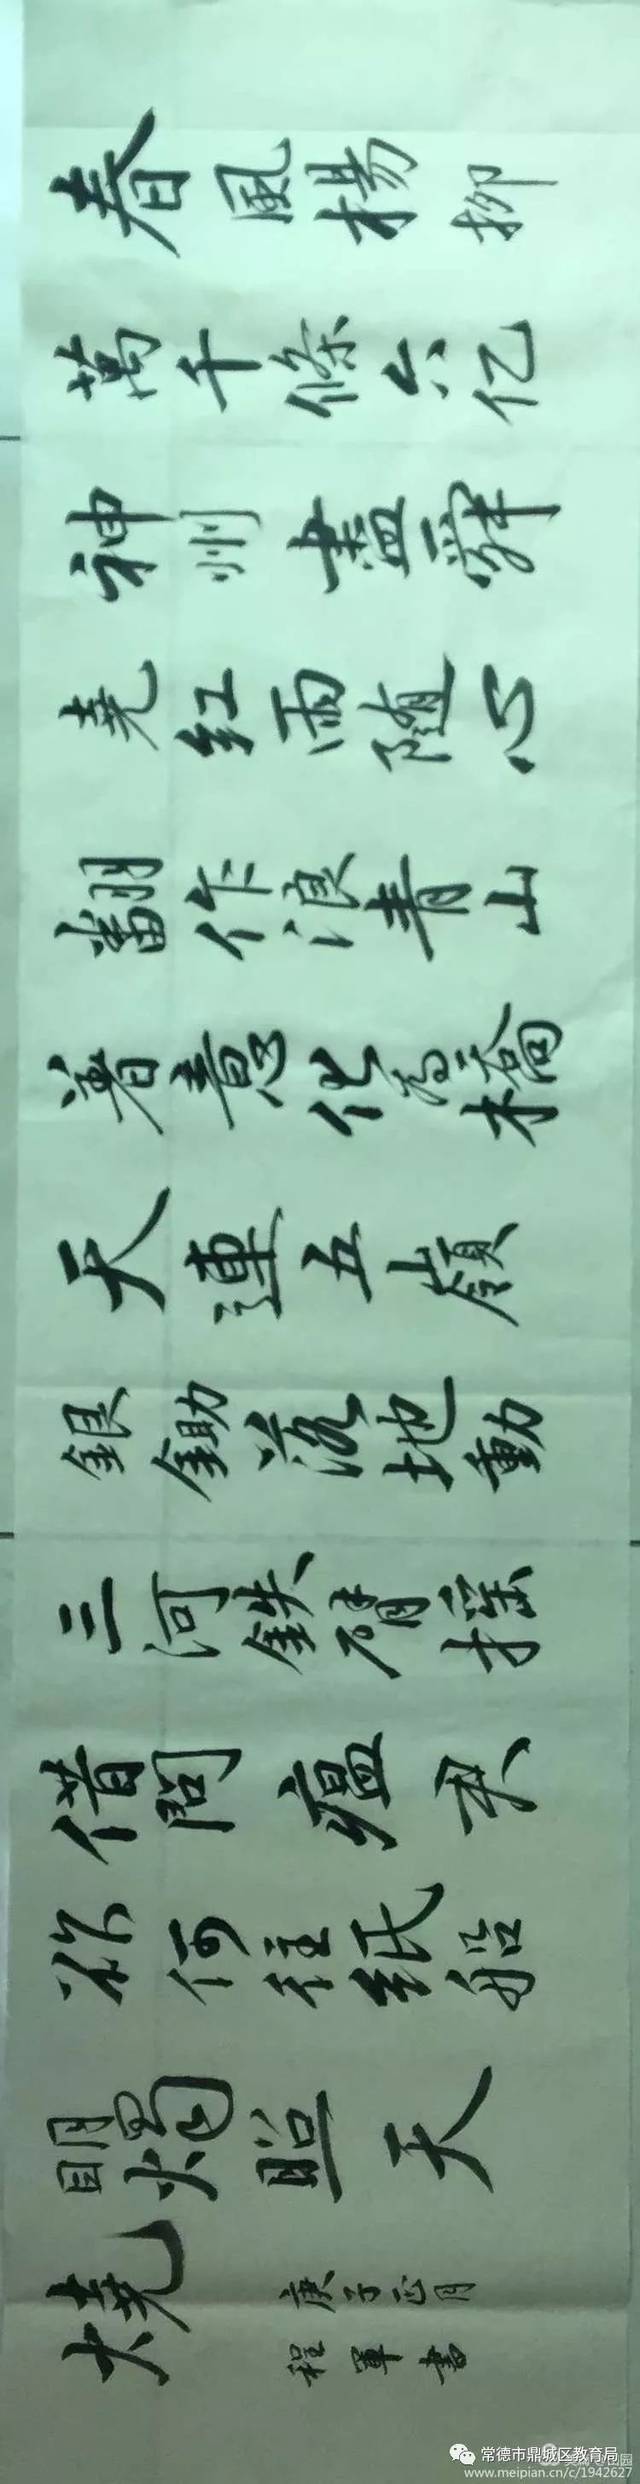 春風楊柳
萬千條六亿
神州盡舜
尭红雨随心
翻作浪青山
着意化为橋
天連五嶺
銀鋤落地動
三河鉄臂摇
借問瘟君
欲何往纸船
眀燭照天
燒
庚子正月
程軍書
常德市鼎城区教育局
www.meipian.cn/c/1942627